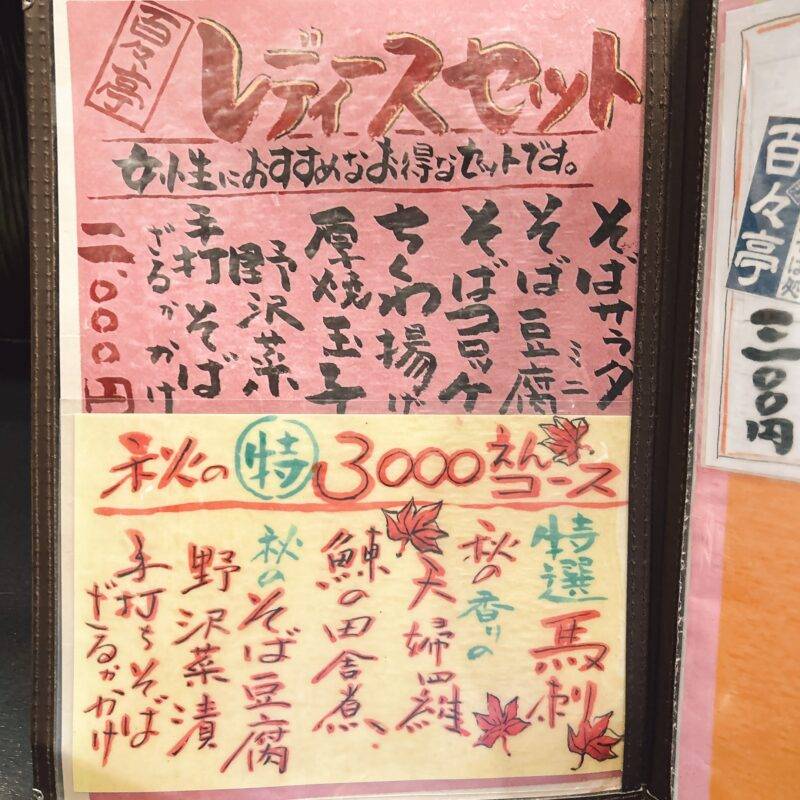 百々亭
レディースセット
女性におすすめなお得なセットです。
そばサラダ
そば豆腐ミニ
そばコロッケ
ちくわ揚げ
厚焼玉子
野沢菜
手打そば
ざるかかけ
二、〇〇〇円
秋の特3000えんコース
特選馬刺
秋の香りの天婦羅
鰊の田舎煮
秋のそば豆腐
野沢菜漬
手打ちそば
ざるかかけ
百々亭
三〇〇円